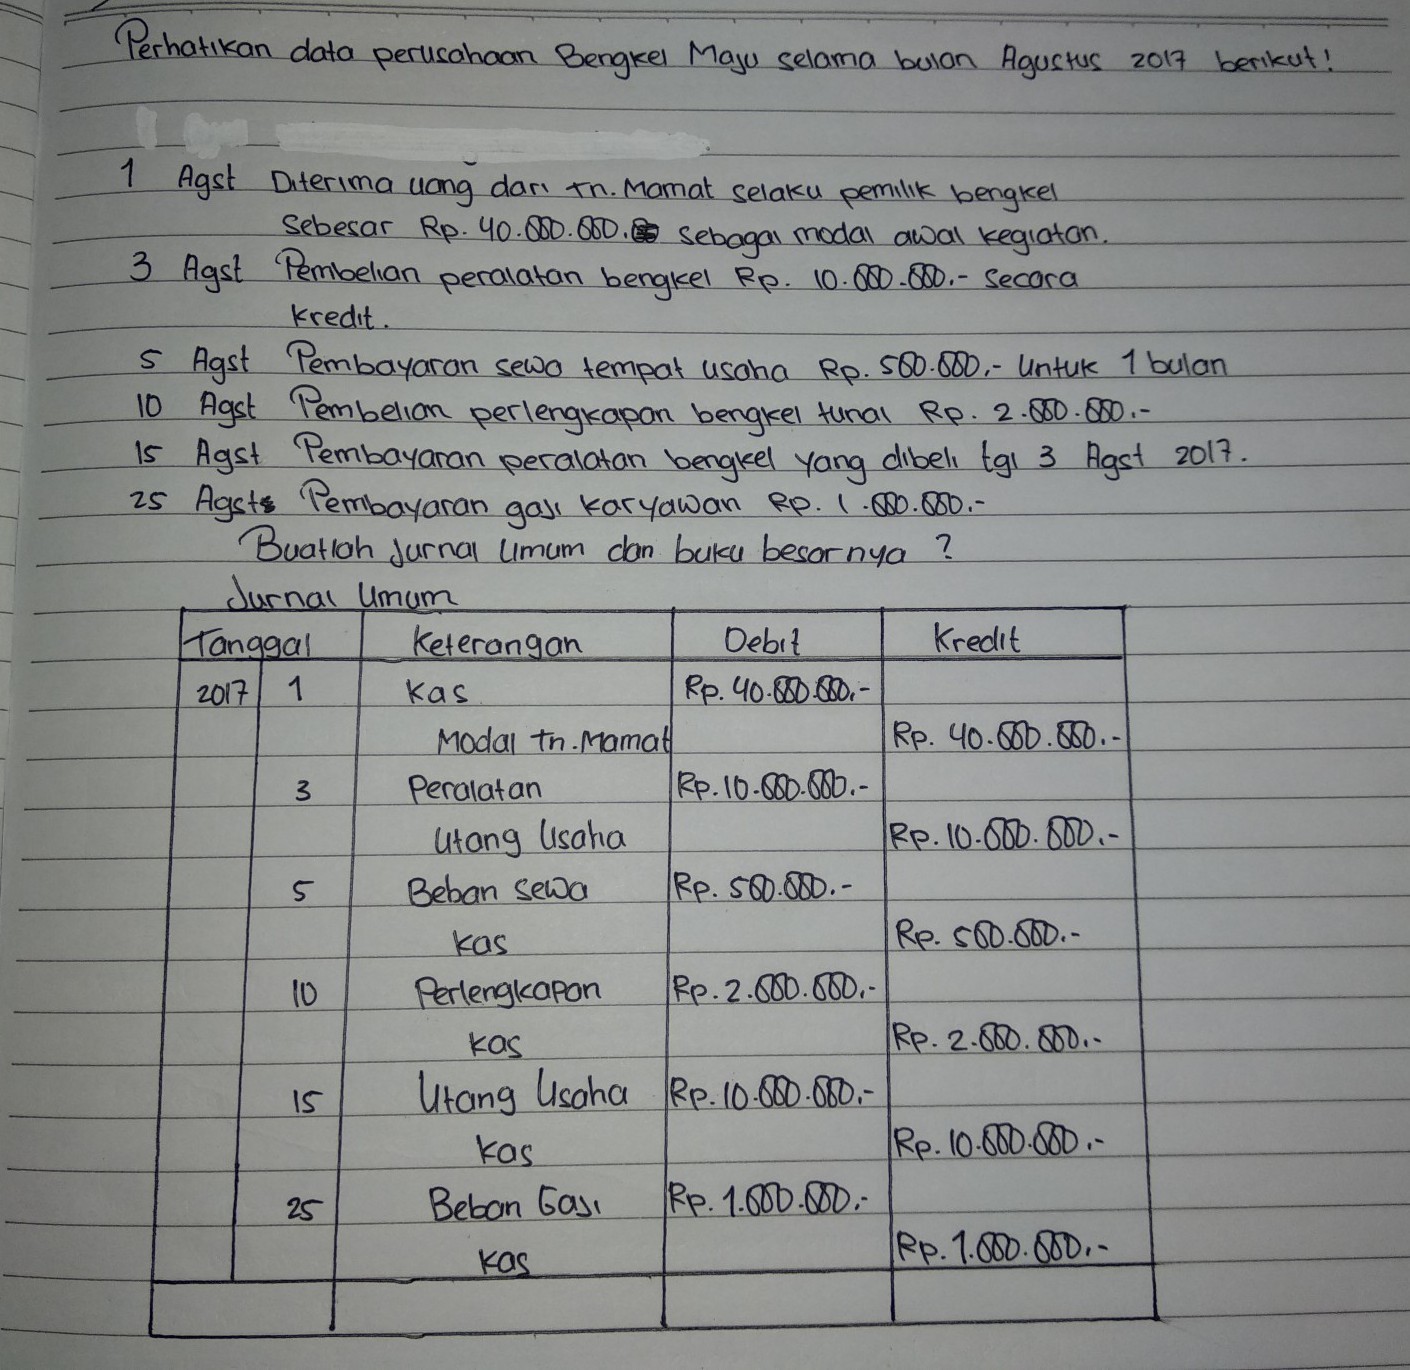 Perhatikan data perusahaan Bengkel Maju selama bulan Agustus 2017 berikut!
1 Agst Diterima uang dari tn. Mamat selaku pemilik bengkel
sebesar Rp. 40.000.000. sebagai modal awal kegiatan.
3 Agst Pembelian peralatan bengkel Rp. 10.000.000.- secara
kredit.
5 Agst Pembayaran sewa tempat usaha Rp. 500.000.- untuk 1 bulan
10 Agst Pembelian perlengkapan bengkel tunai Rp. 2.000.000.-
15 Agst Pembayaran peralatan bengkel yang dibeli tgl 3 Agst 2017.
25 Agst Pembayaran gaji karyawan Rp. 1.000.000.-
Buatlah jurnal umum dan buku besarnya ?
Jurnal Umum
Tanggal Keterangan Debit Kredit
2017 1 Kas Rp. 40.000.000.-
Modal tn. Mamat Rp. 40.000.000.-
3 Peralatan Rp. 10.000.000.-
Utang Usaha Rp. 10.000.000.-
5 Beban sewa Rp. 500.000.-
Kas Rp. 500.000.-
10 Perlengkapan Rp. 2.000.000.-
Kas Rp. 2.000.000.-
15 Utang Usaha Rp. 10.000.000.-
Kas Rp. 10.000.000.-
25 Beban Gaji Rp. 1.000.000.-
Kas Rp. 1.000.000.-